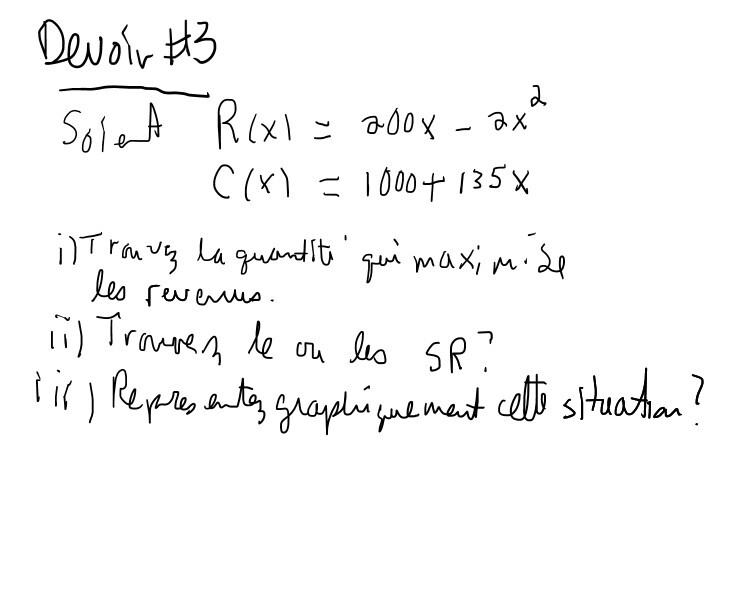 Devoir #3
Soient R(x) = 200x - 2x²
C(x) = 1000 + 135x
i) Trouvez la quantité qui maximise
les revenus.
ii) Trouvez le ou les SR?
iii) Représentez graphiquement cette situation?